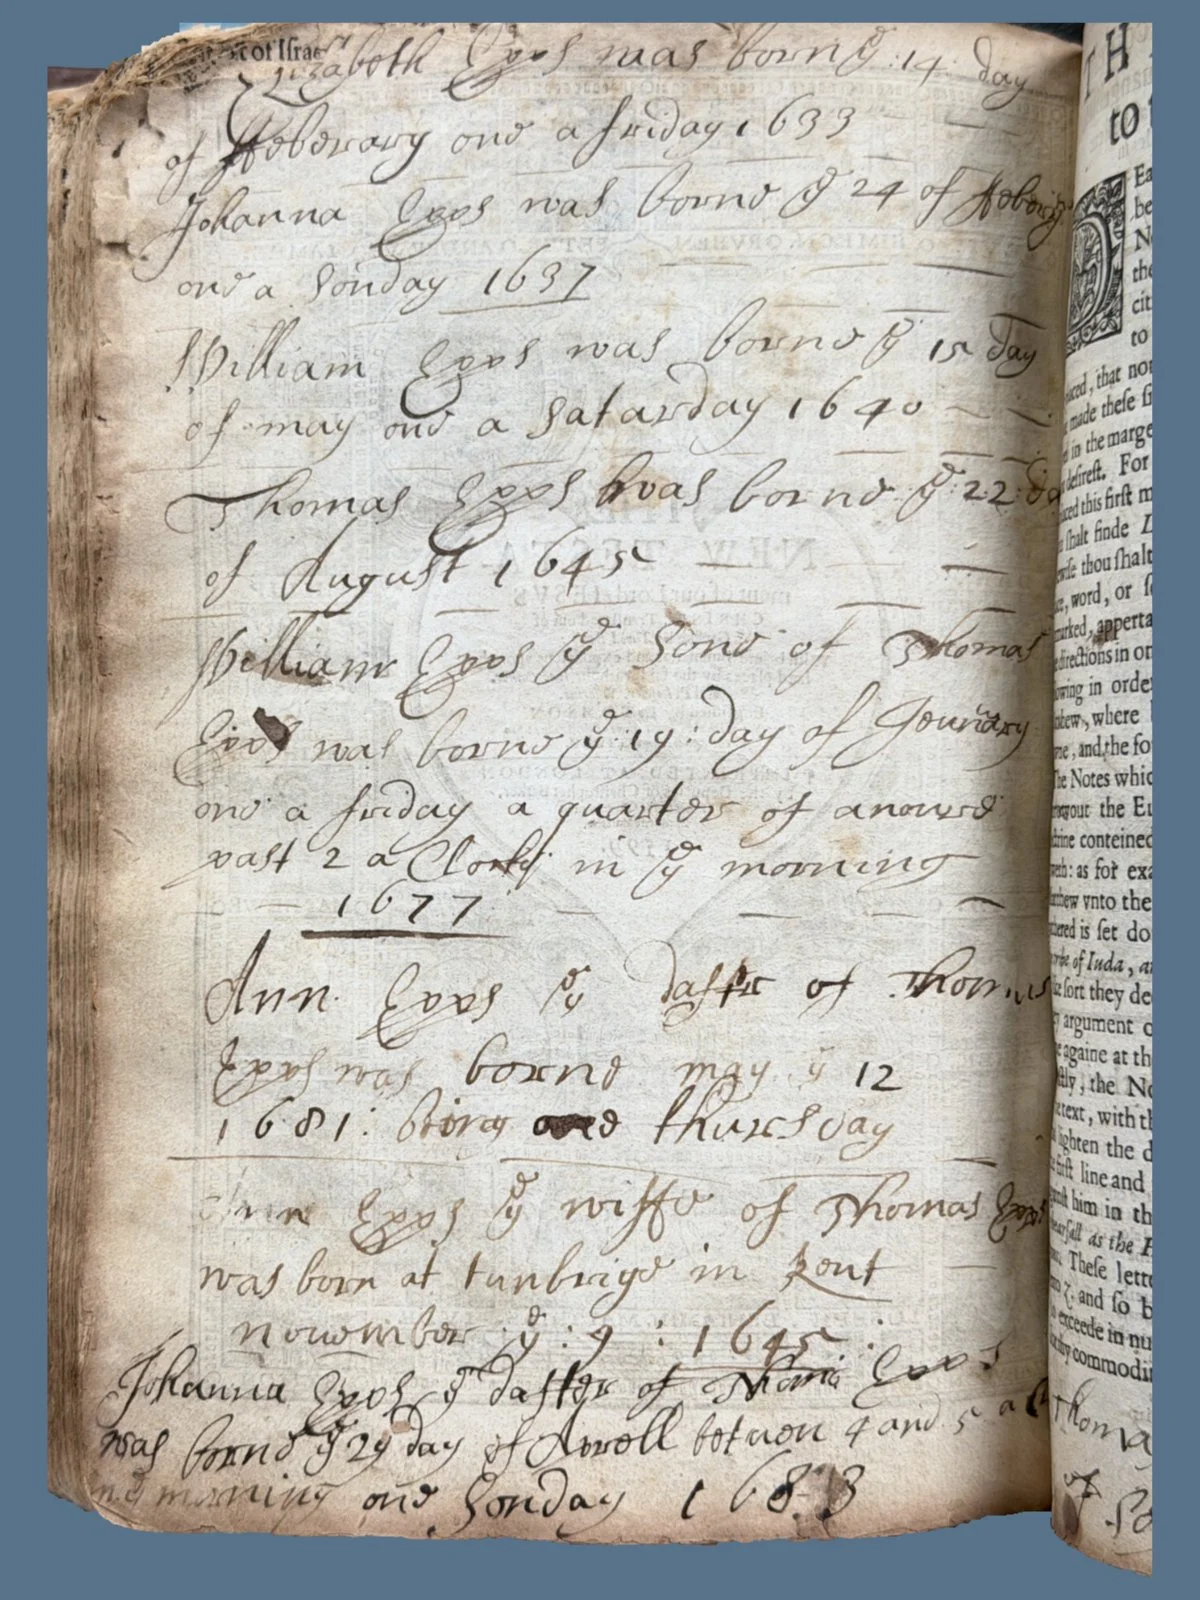 Elizabeth Epps was borne yͤ 14 day
of ffeberary one a friday 1633
Johanna Epps was borne yͤ 24 of ffebery
one a Sonday 1637
William Epps was borne yͤ 15 day
of may one a Satarday 1640
Thomas Epps was borne yͤ 22 da
of August 1645
William Epps yͤ Sone of Thomas
Epps was borne yͤ 19 : day of Jenuary
one a friday a quarter of anoure
past 2 a Clock in yͤ morning
1677
Ann Epps yͤ dafter of Thomas
Epps was borne may yͤ 12
1681 : being one thursday
Ann Epps yͤ wiffe of Thomas Epps
was born at tunbrige in Kent
nouember yͤ : 9 : 1645 :
Johanna Epps yͤ dafter of Thomas Epps
was borne yͤ 29 day of Aprell betwen 4 and 5 a
morning one Sonday 1683
TH
to
Ea
be
the
cit
to
that not
made these
in the marge
desirest. For
this first m
shalt finde
thou shalt
word, or
marked, apperta
directions in or
in orde
where
and the fo
The Notes whic
out the Eu
conteined
: as for exa
vnto the
is set do
of Iuda,
sort they de
argument
againe at th
the No
text, with th
lighten the d
first line and
him in th
as the
These lette
and so b
exceede in nu
commodi
Thoma